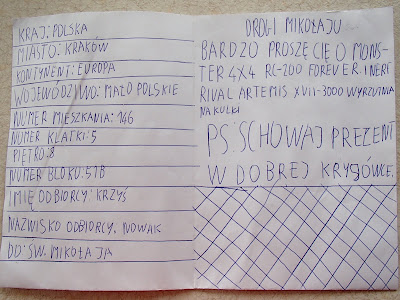 KRAJ: POLSKA
MIASTO: KRAKÓW
KONTYNENT: EUROPA
WOJEWÓDZIWO: MAŁO POLSKIE
NUMER MIESZKANIA: 146
NUMER KLATKI: 5
PIĘTRO: 8
NUMER BLOKU: 57B
IMIĘ ODBIORCY: KRZYŚ
NAZWISKO ODBIORCY. NOWAK
DO: ŚW. MIKOŁAJA
DROGI MIKOŁAJU
BARDZO PROSZĘ CIĘ O MONS-
TER 4X4 RC-200 FOREVER. I NERF
RIVAL ARTEMIS XVII-3000 WYRZUTNIA
NA KULKI
PS. SCHOWAJ PREZENT
W DOBREJ KRYJÓWCE.